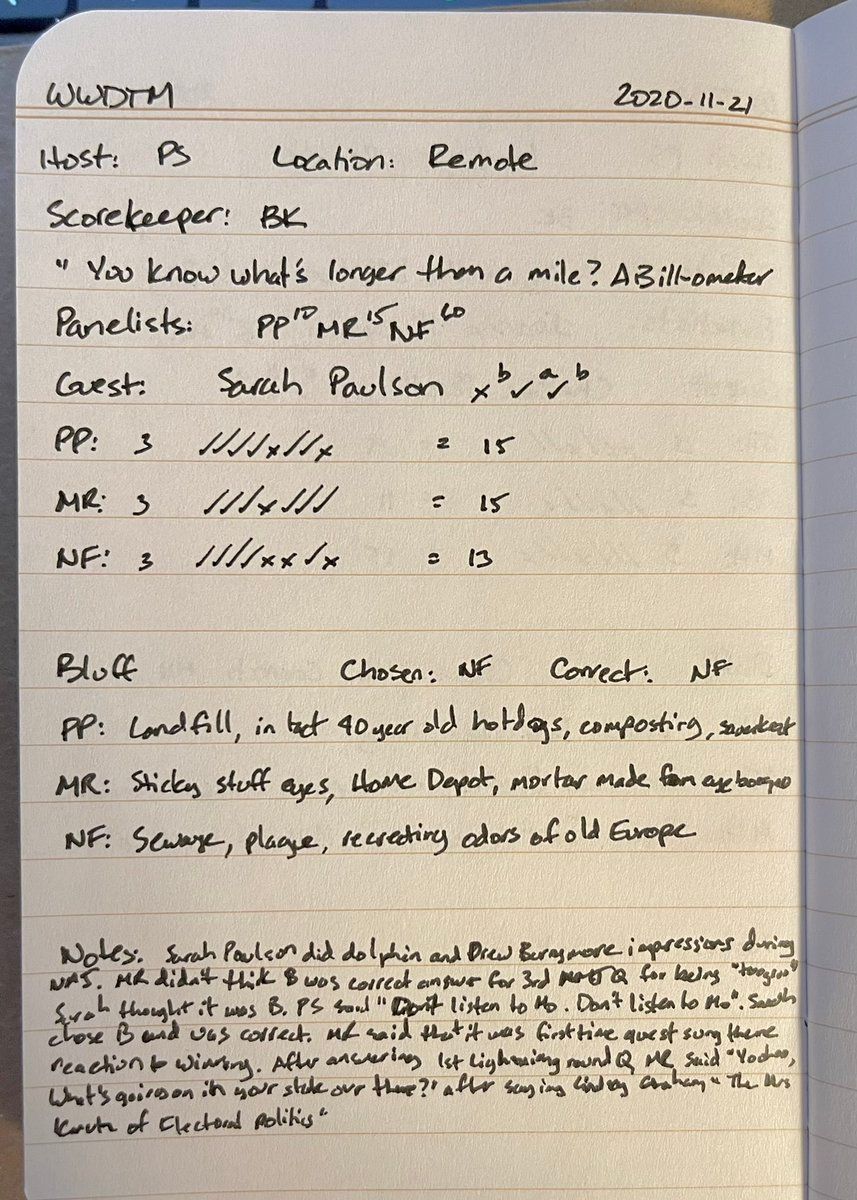 WWDTM 2020-11-21
Host: PS Location: Remote
Scorekeeper: BK
" You know what's longer than a mile? A Bill-ometer
Panelists: PP¹⁰ MR¹⁵ NF⁶⁰
Guest: Sarah Paulson x ᵇ ✓ ᵃ ✓ ᵇ
PP: 3 ✓✓✓✓x✓✓x = 15
MR: 3 ✓✓✓x✓✓✓ = 15
NF: 3 ✓✓✓✓xx✓x = 13
Bluff Chosen: NF Correct: NF
PP: Landfill, in tact 40 year old hotdogs, composting,
MR: Sticky stuff eyes, Home Depot, mortar made from eye
NF: Sewage, plague, recreating odors of old Europe
Notes: Sarah Paulson did dolphin and Drew Barrymore impressions during
MR didn't think B was correct answer for 3rd Q for being
Sarah thought it was B. PS said "Don't listen to Mo. Don't listen to Mo". Sarah
chose B and was correct. MR said that it was first time guest sung there
reaction to winning. After answering 1st Lightening round Q MR said "Yoohoo,
What's going on in your state over there?" after saying Lindsey Graham "The
of Electoral Politics"